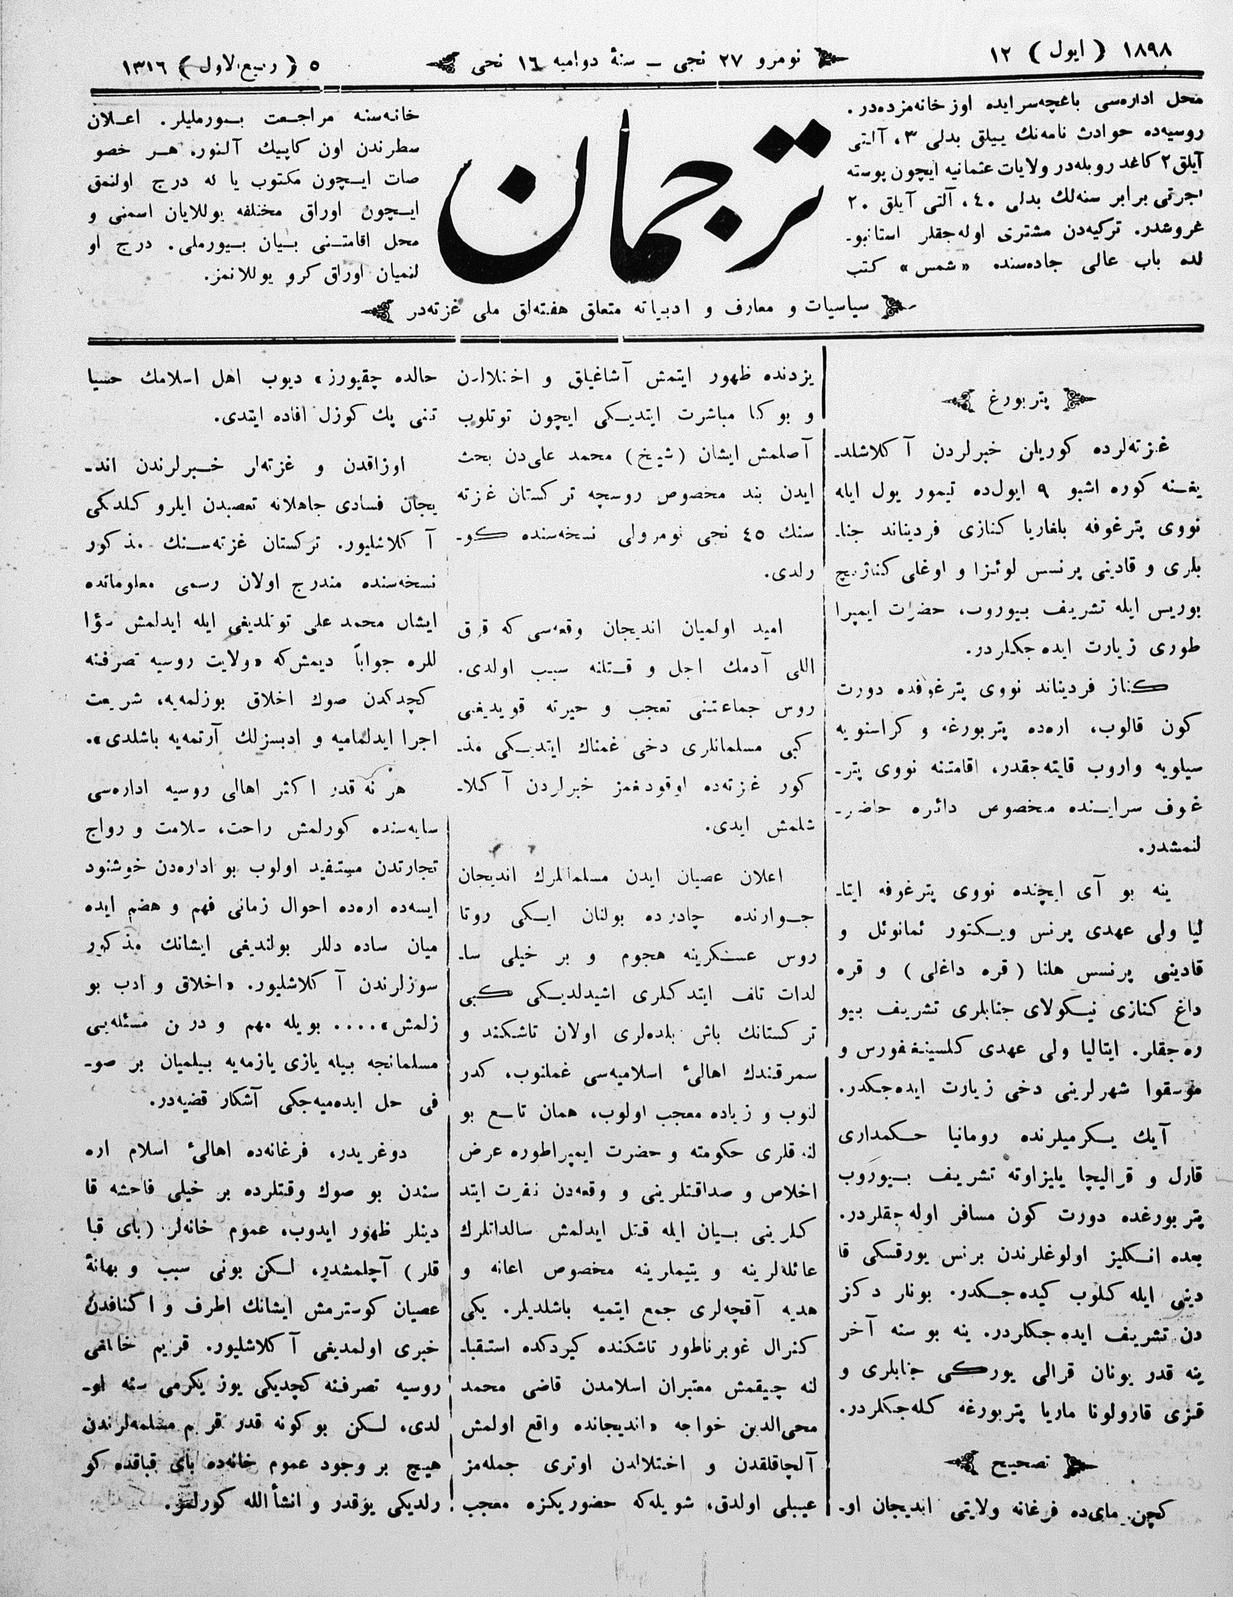 ١٨٩٨ ( ايول ) ١٢
نومرو ٢٧ نجى ــ سنۀ دواميه ١٦ نجى
٥ ( ربيع الاول ) ١٣١٦
محل اداره‌سى باغچه‌سرايده اوز خانه‌مزده‌در.
روسيه‌ده حوادث نامه‌نك ييللق بدلى ٣، آلتى
آيلق ٢ كاغد روبله‌در ولايات عثمانيه ايچون پوسته
اجرتى برابر سنه‌لك بدلى ٤٠، آلتى آيلق ٢٠
غروشدر. تركيه‌دن مشترى اوله‌جقلر استانبو-
لده باب عالى جاده‌سنده «شمس» كتب
ترجمان
خانه‌سنه مراجعت بيورمليلر. اعلان
سطرندن اون كاپيك آلنور. هر خصو
صات ايچون مكتوب يا له درج اولنمق
ايچون اوراق مختلفه يوللايان اسمنى و
محل اقامتنى بيان بيورملى. درج او
لنميان اوراق كرو يوللانمز.
سياسيات و معارف و ادبياته متعلق هفته‌لق ملى غزته‌در
پتربورغ
غزته‌لرده كوريلن خبرلردن آكلاشلد-
يغنه كوره اشبو ٩ ايول‌ده تيمور يول ايله
نووى پترغوفه بلغاريا كنازى فرديناند جنا-
بلرى و قادينى پرنسس لوئيزا و اوغلى كنازيچ
بوريس ايله تشريف بيوروب، حضرت ايمپرا
طورى زيارت ايده‌جكلردر.
كناز فرديناند نووى پترغوفده دورت
كون قالوب، اره‌ده پتربورغه و كراسنويه
سيلويه واروب قايته‌جقدر، اقامتنه نووى پتر-
غوف سراينده مخصوص دائره حاضر-
لنمشدر.
ينه بو آى ايچنده نووى پترغوفه ايتا-
ليا ولى عهدى پرنس ويكتور ئمانوئل و
قادينى پرنسس هلنا ( قره داغلى ) و قره
داغ كنازى نيكولاى جنابلرى تشريف بيو
ره‌جقلر. ايتاليا ولى عهدى كلسينغفورس و
موسقوا شهرلرينى دخى زيارت ايده‌جكدر.
آيك يكرميلرنده رومانيا حكمدارى
قارل و قراليچا يليزاوته تشريف بيوروب
پتربورغده دورت كون مسافر اوله‌جقلردر.
بعده انكليز اولوغلرندن برنس يورقسكى قا
دينى ايله كلوب كيده‌جكدر. بونلر دكز
دن تشريف ايده‌جكلردر. ينه بو سنه آخر
ينه قدر يونان قرالى يوركى جنابلرى و
قيزى قارولونا ماريا پتربورغه كله‌جكلردر.
تصحيح
كچن ماى‌ده فرغانه ولايتى انديجان او-
يزدنده ظهور ايتمش آشاغيلق و اختلالدن
و بوكا مباشرت ايتديكى ايچون توتلوب
آصلمش ايشان (شيخ) محمد على‌دن بحث
ايدن بند مخصوص روسچه تركستان غزته
سنك ٤٥ نجى نومرولى نسخه‌سنده كو-
رلدى.
اميد اولميان انديجان وقعه‌سى كه قرق
اللى آدمك اجل و قتلنه سبب اولدى.
روس جماعتنى تعجب و حيرته قويديغى
كبى مسلمانلرى دخى غمناك ايتديكى مذ-
كور غزته‌ده اوقودغمز خبرلردن آكلا-
شلمش ايدى.
اعلان عصيان ايدن مسلمانلرك انديجان
جوارنده چادرده بولنان ايكى روتا
روس عسكرينه هجوم و بر خيلى سا-
لدات تلف ايتدكلرى اشيدلديكى كبى
تركستانك باش بلده‌لرى اولان تاشكند و
سمرقندك اهالئ اسلاميه‌سى غملنوب، كدر
لنوب و زياده معجب اولوب، همان تاسع بو
لنه‌قلرى حكومته و حضرت ايمپراطوره عرض
اخلاص و صداقتلرينى و وقعه‌دن نفرت ايتد
كلرينى بيان ايله قتل ايدلمش سالداتلرك
عائله‌لرينه و يتيملرينه مخصوص اعانه و
هديه آقچه‌لرى جمع ايتميه باشلديلر. يكى
كنرال غوبرناطور تاشكنده كيردكده استقبا-
لنه چيقمش معتبران اسلامدن قاضى محمد
محى‌الدين خواجه «انديجانده واقع اولمش
آلچاقلقدن و اختلالدن اوترى جمله‌مز
عيبلى اولدق، شويله‌كه حضوريكزه معجب
حالده چقيورز» ديوب اهل اسلامك حسيا
تنى پك كوزل افاده ايتدى.
اوزاقدن و غزته‌لر خبرلرندن اند-
يجان فسادى جاهلانه تعصبدن ايلرو كلدكى
آكلاشليور. تركستان غزته‌سنك مذكور
نسخه‌سنده مندرج اولان رسمى معلوماتده
ايشان محمد على توتلديغى ايله ايدلمش سؤا
للره جواباً ديمش‌كه «ولايت روسيه تصرفنه
كچدكدن صوك اخلاق بوزلمه‌يه، شريعت
اجرا ايدلماميه و ادبسزلك آرتمه‌يه باشلدى».
هر نه قدر اكثر اهالى روسيه اداره‌سى
سايه‌سنده كورلمش راحت، سلامت و رواج
تجارتدن مستفيد اولوب بو اداره‌دن خوشنود
ايسه‌ده اره‌ده احوال زمانى فهم و هضم ايده
ميان ساده دللر بولنديغى ايشانك مذكور
سوزلرندن آكلاشليور. «اخلاق و ادب بو
زلمش».... بويله مهم و درن مسئله‌يى
مسلمانجه بيله يازى يازمه‌يه بيلميان بر صو-
فى حل ايده‌ميه‌جكى آشكار قضيه‌در.
دوغريدر، فرغانه‌ده اهالئ اسلام اره
سندن بو صوك وقتلرده بر خيلى فاحشه قا
دينلر ظهور ايدوب، عموم خانه‌لر (باى قبا
قلر) آچلمشدر، لكن بونى سبب و بهانۀ
عصيان كوسترمش ايشانك اطرف و اكنافدن
خبرى اولمديغى آكلاشليور. قريم خالقى
روسيه تصرفنه كچديكى يوز يكرمى سنه او-
لدى، لكن بوكونه قدر قريم مسلمه‌لرندن
هيچ بر وجود عموم خانه‌ده باى قباقده كو
رلديكى يوقدر و انشأالله كورلمز.